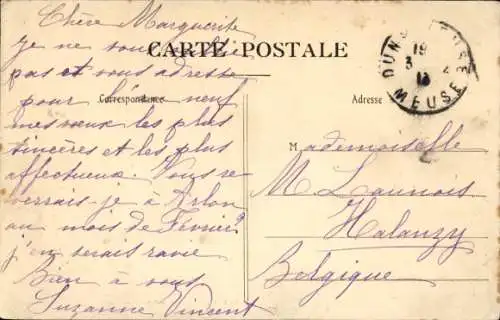 Chère Marguerite
CARTE POSTALE
Je ne vous oublie
pas et vous adresse
pour l'an neuf
Correspondance
Adresse
mes vœux les plus
sincères et les plus
affectueux. Vous re
verrais-je à Arlon
au mois de Février?
j'en serais ravie
Bien à vous
Suzanne Vincent
DUN-S-MEUSE
MEUSE
Mademoiselle
M Launois
Halanzy
Belgique